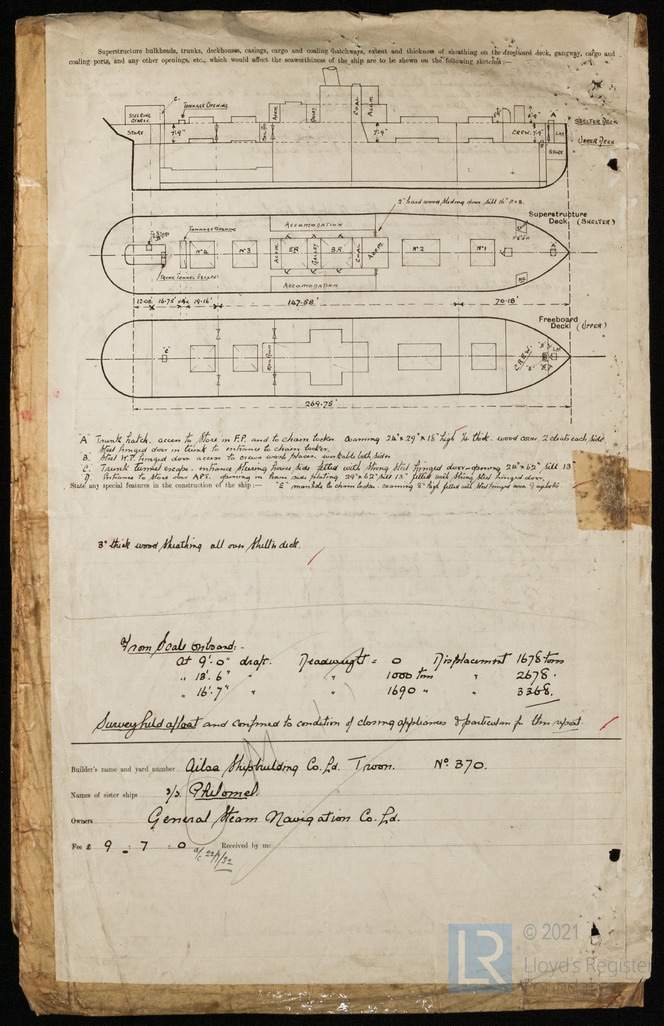 Superstructure bulkheads, trunks, deckhouses, casings, cargo and coaling hatchways, extent and thickness of sheathing on the freeboard deck, gangway, cargo and
coaling ports, and any other openings, etc., which would affect the seaworthiness of the ship are to be shewn on the following sketches:—
C.
TONNAGE OPENING
STEERING GEAR
STORE
7'-9"
ACCM.
GALLEY
COAL
ACCM.
7'-9"
CREW.
7'-9"
A
LAV
STORE
SHELTER DECK
UPPER DECK
2" hard wood sliding door, sill 16"
Superstructure
Deck (SHELTER)
TONNAGE OPENING
ACCOMODATION
Nº4
Nº3
ACCM.
ER
GALLEY
BR
COAL
ACCM.
Nº2
Nº1
TRUNK TUNNEL ESCAPE
ACCOMODATION
12.08'
16.75'
19.16'
147.58'
70.18'
Freeboard
Deck (UPPER)
CREW.
269.75'
A Trunk hatch. access to Store in F.P. and to chain locker. Coaming 24" x 29" x 18" high thick. wood cover, 2 cleats each side
Steel hinged door in trunk to entrance to chain locker.
B. Steel W.T. hinged door access to crew wash places. workable both sides
C. Trunk tunnel escape. entrance steering house side fitted with strong steel hinged door—opening 24" x 62", sill 13"
D. Entrance to Store over A.P.T. opening in house side 29" x 62" sill 13" fitted with strong steel hinged door.
State any special features in the construction of the ship:— "E" manhole to chain locker. coaming 2" high fitted with steel hinged cover
3" thick wood sheathing all over shelter deck.
From Scale onboard:-
At 9'-0" draft. Deadweight = 0 Displacement 1678 tons
" 13'.6" " " 1000 tons " 2678 "
" 16'.7" " " 1690 " " 3368.
Survey held afloat and confined to condition of closing appliances & particulars for this report.
Builder's name and yard number Ailsa Shipbuilding Co. Ld. Troon. Nº. 370.
Names of sister ships s/s. Philomel.
Owners General Steam Navigation Co. Ld.
Fee £ 9 : 7 : 0 Received by me
© 2021
LR
Lloyd's Register
Foundation